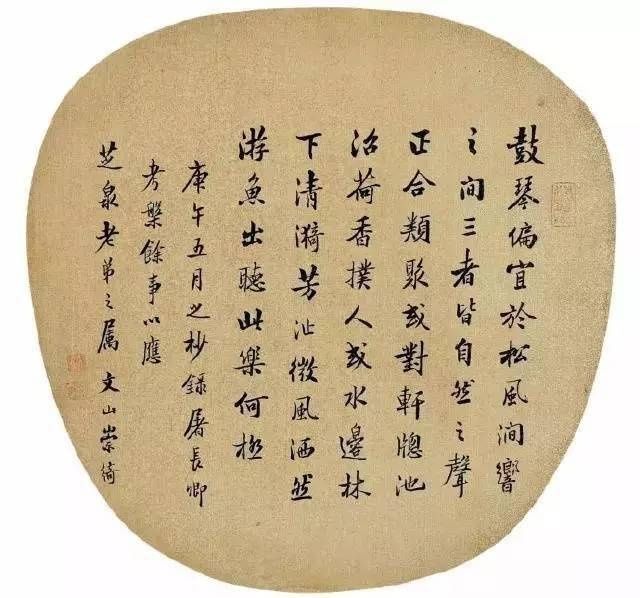 鼓琴偏宜於松風澗響
之间三者皆自然之聲
正合類聚或對軒牕池
沼荷香撲人或水邊林
下清漪芳沚微風洒然
游魚出聽此樂何極
庚午五月之杪錄屠長卿
考槃餘事以應
芝泉老弟之属 文山崇綺